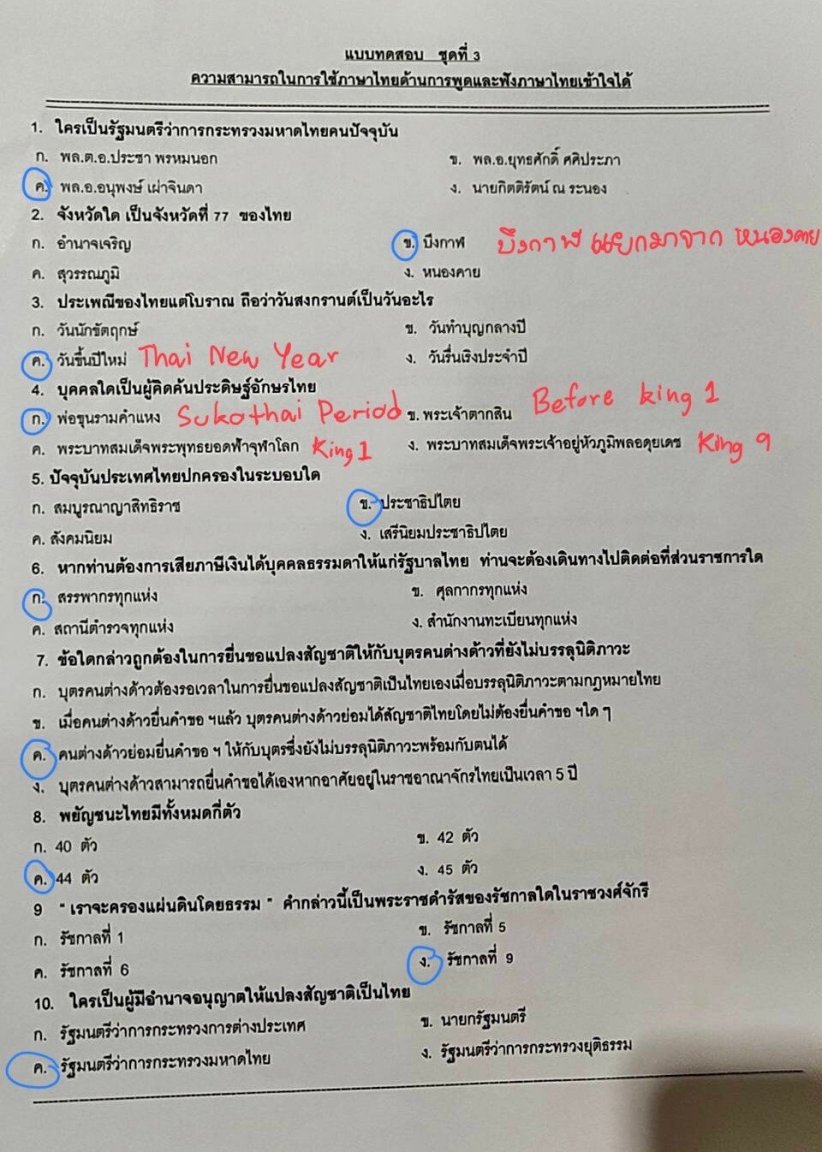 แบบทดสอบ ชุดที่ 3
ความสามารถในการใช้ภาษาไทยด้านการพูดและฟังภาษาไทยเข้าใจได้
1. ใครเป็นรัฐมนตรีว่าการกระทรวงมหาดไทยคนปัจจุบัน
ก. พล.ต.อ.ประชา พรหมนอก ข. พล.อ.ยุทธศักดิ์ ศศิประภา
ค. พล.อ.อนุพงษ์ เผ่าจินดา ง. นายกิตติรัตน์ ณ ระนอง
2. จังหวัดใด เป็นจังหวัดที่ 77 ของไทย
ก. อำนาจเจริญ ข. บึงกาฬ บึงกาฬ แยกมาจาก หนองคาย
ค. สุวรรณภูมิ ง. หนองคาย
3. ประเพณีของไทยแต่โบราณ ถือว่าวันสงกรานต์เป็นวันอะไร
ก. วันนักขัตฤกษ์ ข. วันทำบุญกลางปี
ค. วันขึ้นปีใหม่ Thai New Year ง. วันรื่นเริงประจำปี
4. บุคคลใดเป็นผู้คิดค้นประดิษฐ์อักษรไทย
ก. พ่อขุนรามคำแหง Sukothai Period ข. พระเจ้าตากสิน Before king 1
ค. พระบาทสมเด็จพระพุทธยอดฟ้าจุฬาโลก King 1 ง. พระบาทสมเด็จพระเจ้าอยู่หัวภูมิพลอดุยเดช King 9
5. ปัจจุบันประเทศไทยปกครองในระบอบใด
ก. สมบูรณาญาสิทธิราช ข. ประชาธิปไตย
ค. สังคมนิยม ง. เสรีนิยมประชาธิปไตย
6. หากท่านต้องการเสียภาษีเงินได้บุคคลธรรมดาให้แก่รัฐบาลไทย ท่านจะต้องเดินทางไปติดต่อที่ส่วนราชการใด
ก. สรรพากรทุกแห่ง ข. ศุลกากรทุกแห่ง
ค. สถานีตำรวจทุกแห่ง ง. สำนักงานทะเบียนทุกแห่ง
7. ข้อใดกล่าวถูกต้องในการยื่นขอแปลงสัญชาติให้กับบุตรคนต่างด้าวที่ยังไม่บรรลุนิติภาวะ
ก. บุตรคนต่างด้าวต้องรอเวลาในการยื่นขอแปลงสัญชาติเป็นไทยเองเมื่อบรรลุนิติภาวะตามกฎหมายไทย
ข. เมื่อคนต่างด้าวยื่นคำขอ ฯแล้ว บุตรคนต่างด้าวย่อมได้สัญชาติไทยโดยไม่ต้องยื่นคำขอ ฯใด ๆ
ค. คนต่างด้าวย่อมยื่นคำขอ ฯ ให้กับบุตรซึ่งยังไม่บรรลุนิติภาวะพร้อมกับตนได้
ง. บุตรคนต่างด้าวสามารถยื่นคำขอได้เองหากอาศัยอยู่ในราชอาณาจักรไทยเป็นเวลา 5 ปี
8. พยัญชนะไทยมีทั้งหมดกี่ตัว
ก. 40 ตัว ข. 42 ตัว
ค. 44 ตัว ง. 45 ตัว
9 " เราจะครองแผ่นดินโดยธรรม " คำกล่าวนี้เป็นพระราชดำรัสของรัชกาลใดในราชวงศ์จักรี
ก. รัชกาลที่ 1 ข. รัชกาลที่ 5
ค. รัชกาลที่ 6 ง. รัชกาลที่ 9
10. ใครเป็นผู้มีอำนาจอนุญาตให้แปลงสัญชาติเป็นไทย
ก. รัฐมนตรีว่าการกระทรวงการต่างประเทศ ข. นายกรัฐมนตรี
ค. รัฐมนตรีว่าการกระทรวงมหาดไทย ง. รัฐมนตรีว่าการกระทรวงยุติธรรม